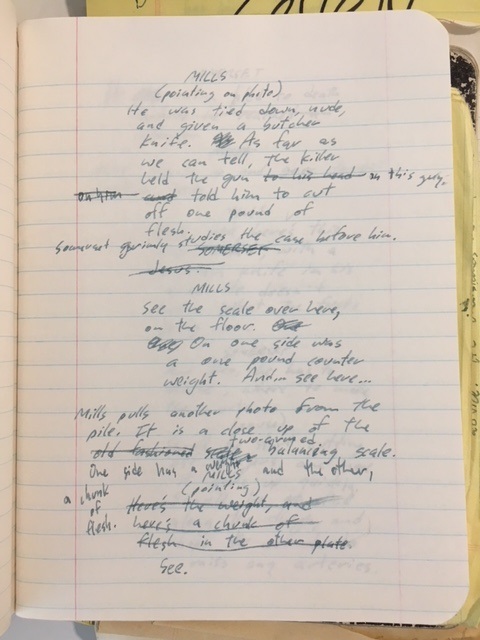 MILLS
(pointing on photo)
He was tied down, nude,
and given a butcher
knife. As far as
we can tell, the killer
held the gun to his head on this guy,
on him and told him to cut
off one pound of
flesh.
Somerset grimly studies the case before him.
SOMERSET
Jesus.
MILLS
See the scale over here,
on the floor.
On one side was
a one pound counter
weight. And... see here...
Mills pulls another photo from the
pile. It is a close up of the
old fashioned scale two-armed balancing scale.
One side has a weight and the other,
a chunk
of
flesh.
MILLS
(pointing)
Here's the weight, and
here's a chunk of
flesh in the other plate.
See.